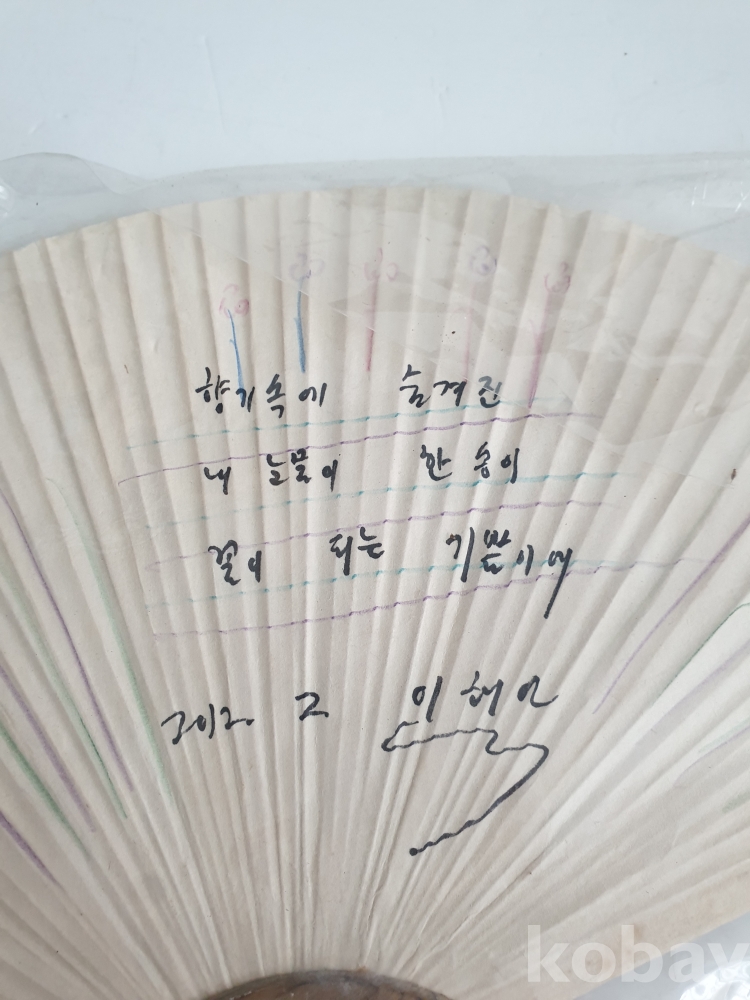 향기속에 숨겨진
내 눈물이 한 송이
꽃이 되는 기쁨이여
2012. 2 이해인
kobay